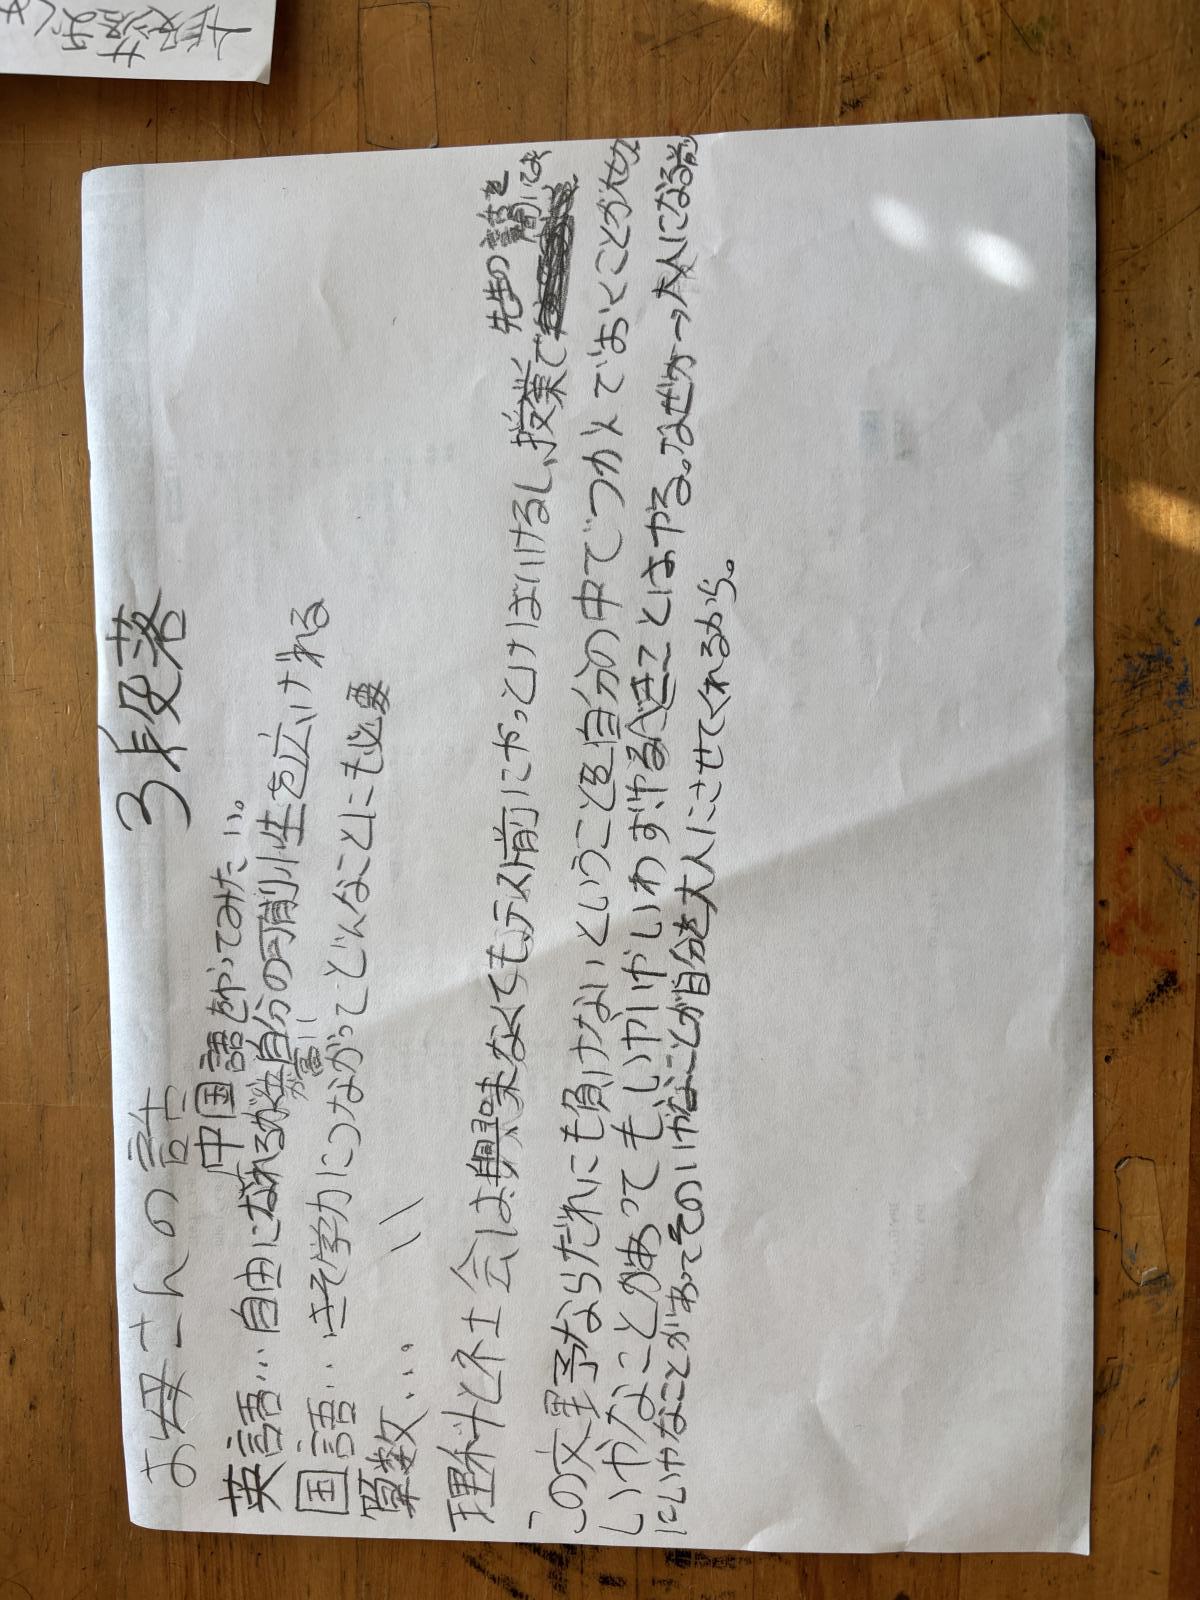 お母さんの話 3段落
中国語をやってみたい。
英語…自由になれるが自分の可能性を広げれる
が富い
国語…きそ学力につながってどんなことにも必要
算数… 〃
理科と社会は興味なくてもテスト前にやっとけばいけるし、授業で
先生の話を
聞いてお
この文野ならだれにも負けないということを自分の中でつかんでおくことが大切
いやなことがあってもいやいやいわずやるべきことはやる。なぜか→大人になる前
にいやなことがあってそのいやなことが自分を大人にさせてくれるから。
段落